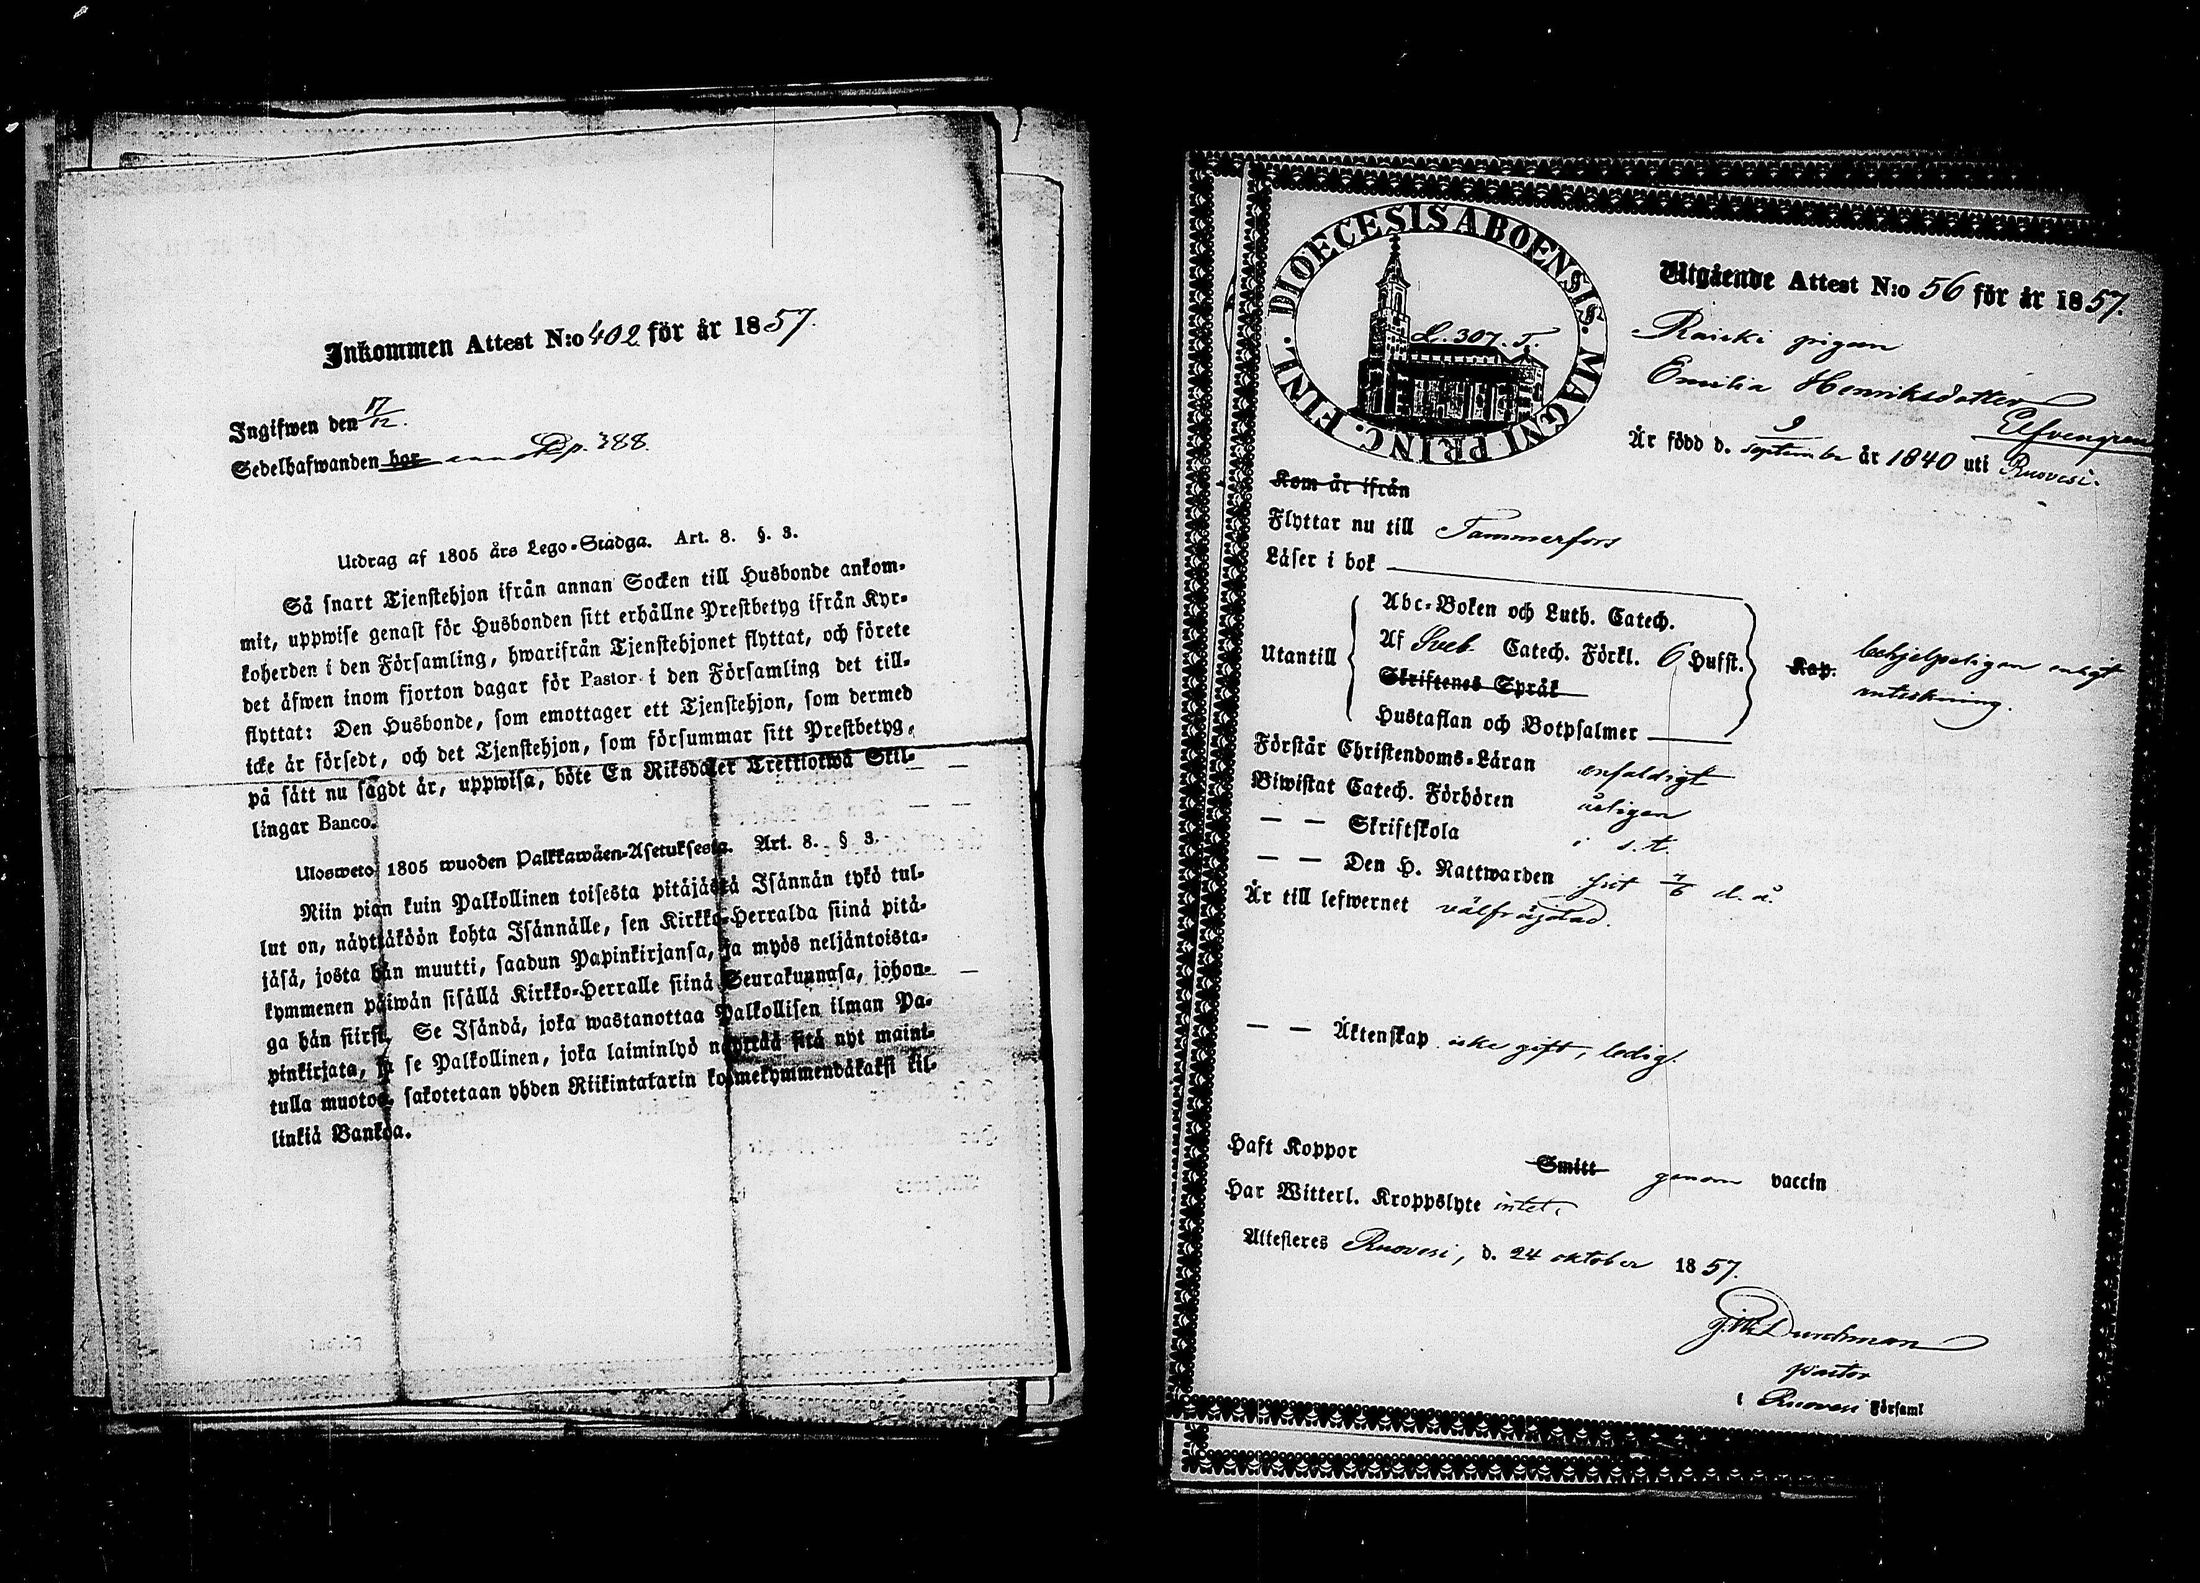 Inkommen Attest N:o 402 för år 1857.
Ingifwen den 17/12.
Sedelhafwanden bor p. 388.
Utdrag af 1805 års Lego-Stadga. Art. 8. §. 3.
Så snart Tjenstehjon ifrån annan Socken till Husbonde ankom-
mit, uppwise genast för Husbonden sitt erhållne Prestbetyg ifrån Kyr-
koherden i den Församling, hwarifrån Tjenstehjonet flyttat, och förete
det äfwen inom fjorton dagar för Pastor i den Församling det till-
flyttat: Den Husbonde, som emottager ett Tjenstehjon, som dermed
icke är försedt, och det Tjenstehjon, som försummar sitt Prestbetyg,
på sätt nu sagdt är, uppwisa, böte En Riksdaler Trettiotwå Skil-
lingar Banco.
Ulosweto 1805 wuoden Palkkawäen-Asetuksesta. Art. 8. § 3.
Niin pian kuin Palkollinen toisesta pitäjästä Isännän tykö tul-
lut on, näyttäköön kohta Isännälle, sen Kirkko-Herralda siinä pitä-
jäsä, josta hän muutti, saadun Papinkirjansa, ja myös neljäntoista-
kymmenen päiwän sisällä Kirkko-Herralle siinä Seurakunnasa, johon-
ga hän siirsi, Se Isändä, joka wastanottaa Palkollisen ilman Pa-
pinkirjata, ja se Palkollinen, joka laiminlyö näyttää sitä nyt maini-
tulla muotoa, sakotetaan yhden Riikintalarin kolmekymmendäkaksi kil-
linkiä Bankoa.
DIOECESIS ABOENSIS. MAGNI PRINC. FINL.
L. 307. T.
Utgående Attest N:o 56 för år 1857.
Raiski pigan
Emilia Henriksdotter
Elfvengren
Är född d. 9 september år 1840 uti Ruovesi.
Kom år ifrån
Flyttar nu till Tammerfors
Läser i bok
Utantill
Abc-Boken och Luth. Catech.
Af Sveb. Catech. Förkl. 6 Hufst. Kap.
behjelpeligen enligt
Skriftenes Språk
Hustaflan och Botpsalmer
Förstår Christendoms-Läran enfaldigt
Biwistat Catech. Förhören årligen
— — Skriftskola i s.t.
— — Den H. Nattwarden sist 7/6 d. å.
Är till lefwernet välfrägdad.
— — Äktenskap icke gift, ledig.
Haft Koppor Smitt genom vaccin
Har Witterl. Kroppslyte intet.
Attesteres Ruovesi, d. 24 oktober 1857.
pastor
i Ruovesi Församl